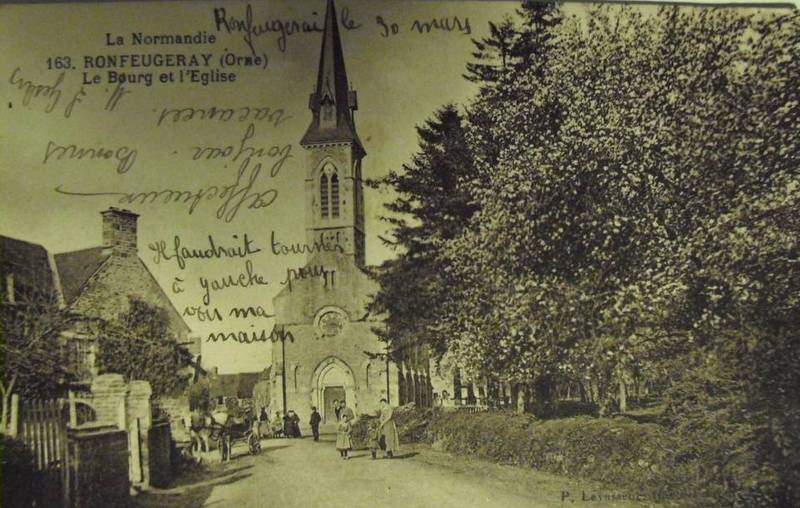 La Normandie
163. RONFEUGERAY (Orne)
Le Bourg et l'Eglise
Ronfeugerai le 30 mars
Affectueux
bonjour. Bonnes
vacances.
Il faudrait tourner
à gauche pour
voir ma
maison
P.